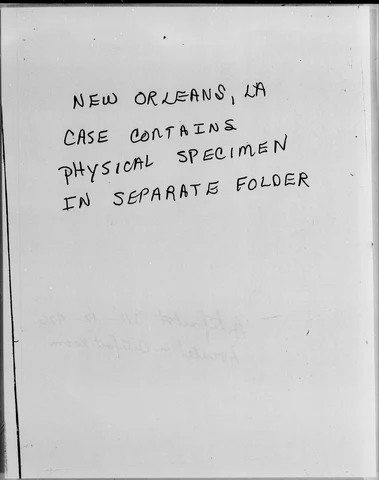 NEW ORLEANS, LA
CASE CONTAINS
PHYSICAL SPECIMEN
IN SEPARATE FOLDER